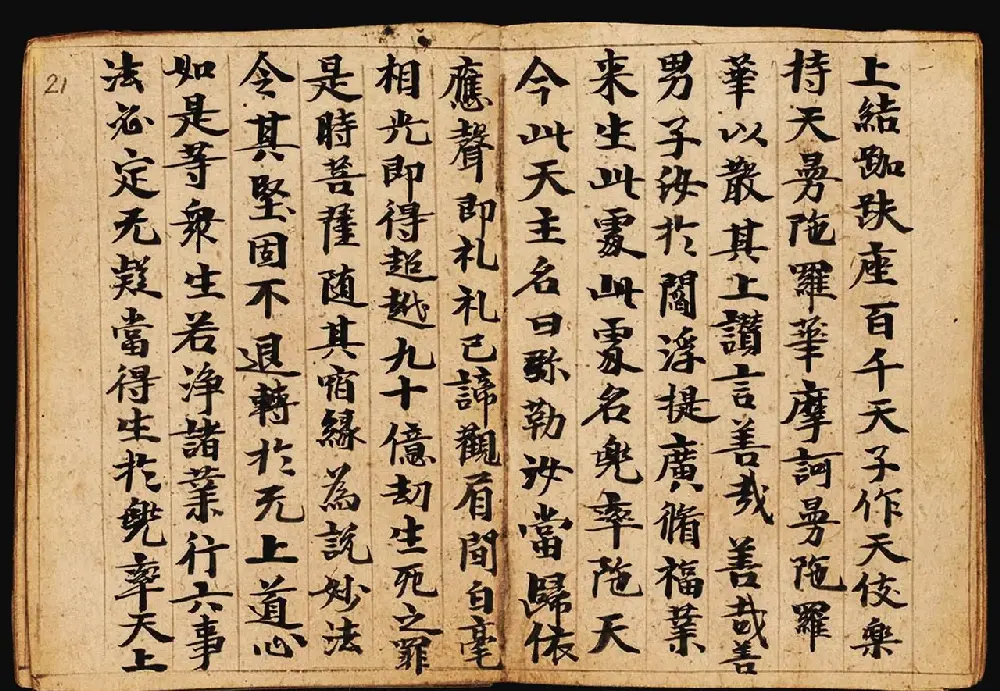 上結跏趺座百千天子作天伎樂
持天曼陁羅華摩訶曼陁羅
華以散其上讚言善哉善哉善
男子汝於閻浮提廣脩福業
来生此處此處名兜率陁天
今此天主名曰弥勒汝當歸依
應聲即礼礼已諦觀眉間白毫
相光即得超越九十億劫生死之罪
是時菩薩随其宿縁為說妙法
令其堅固不退轉於无上道心
如是等衆生若淨諸業行六事
法必定无疑當得生於兜率天上
21